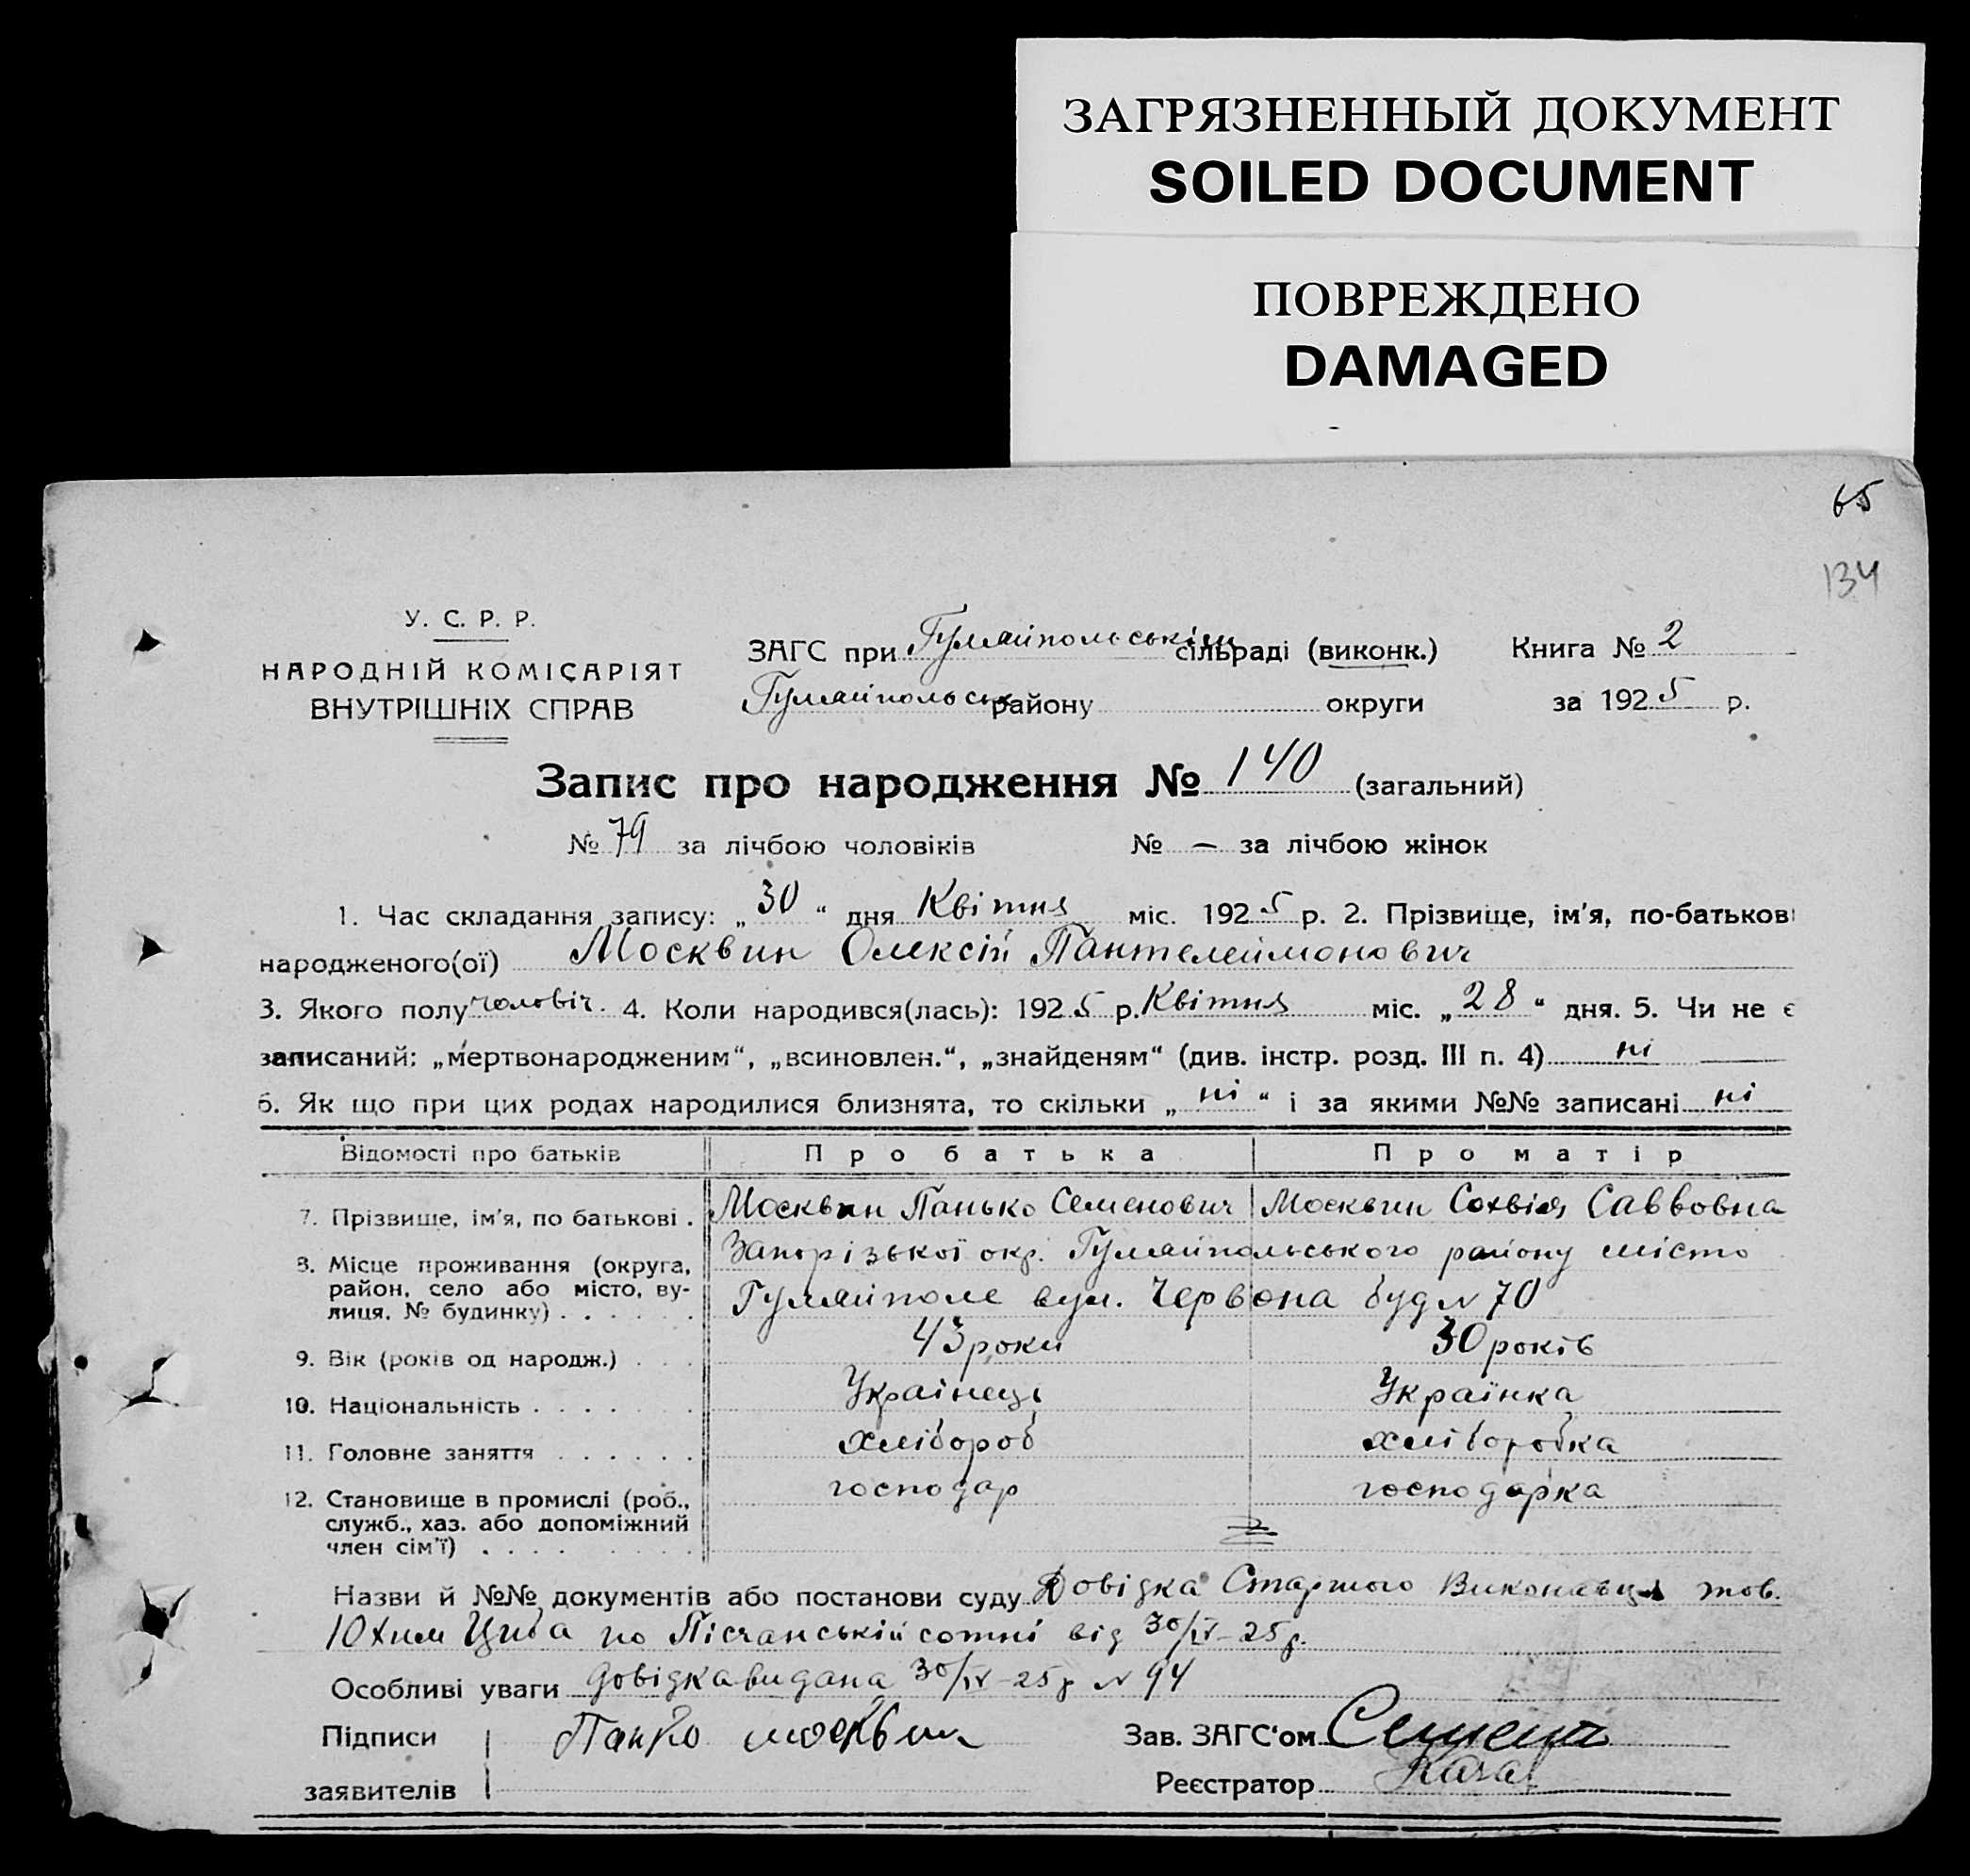 ЗАГРЯЗНЕННЫЙ ДОКУМЕНТ
SOILED DOCUMENT
ПОВРЕЖДЕНО
DAMAGED
65
134
У. С. Р. Р.
НАРОДНІЙ КОМІСАРІЯТ
ВНУТРІШНІХ СПРАВ
ЗАГС при Гуляйпольськім сільраді (виконк.) Книга № 2
Гуляйпольськ району округи за 1925 р.
Запис про народження № 140 (загальний)
№ 79 за лічбою чоловіків № — за лічбою жінок
1. Час складання запису: „30“ дня Квітня міс. 1925 р. 2. Прізвище, ім'я, по-батькові
народженого(ої) Москвин Олексій Пантелеймонович
3. Якого полу чоловіч. 4. Коли народився(лась): 1925 р. Квітня міс. „28“ дня. 5. Чи не є
записаний: „мертвонародженим“, „всиновлен.“, „знайденям“ (див. інстр. розд. III п. 4) ні
6. Як що при цих родах народилися близнята, то скільки „ні“ і за якими №№ записані ні
Відомості про батьків Про батька Про матір
7. Прізвище, ім'я, по батькові . Москвин Панько Семенович Москвин Сохвія Саввовна
8. Місце проживання (округа, район, село або місто, вулиця, № будинку) . . . . . Запорізької окр. Гуляйпольського району місто
Гуляйполе вул. Червона буд № 70
9. Вік (років од народж.) . . . 43 роки 30 років
10. Національність . . . . . . . Українець Українка
11. Головне заняття . . . . . . хлібороб хліборобка
12. Становище в промислі (роб., служб., хаз. або допоміжний член сім'ї) . . . . господар господарка
Назви й №№ документів або постанови суду Довідка Старшого Виконавця тов.
Юхим Циба по Пісчанській сотні від 30/IV-25р.
Особливі уваги довідка видана 30/IV-25р № 94
Підписи Панко москвин Зав. ЗАГС'ом
заявителів Реєстратор